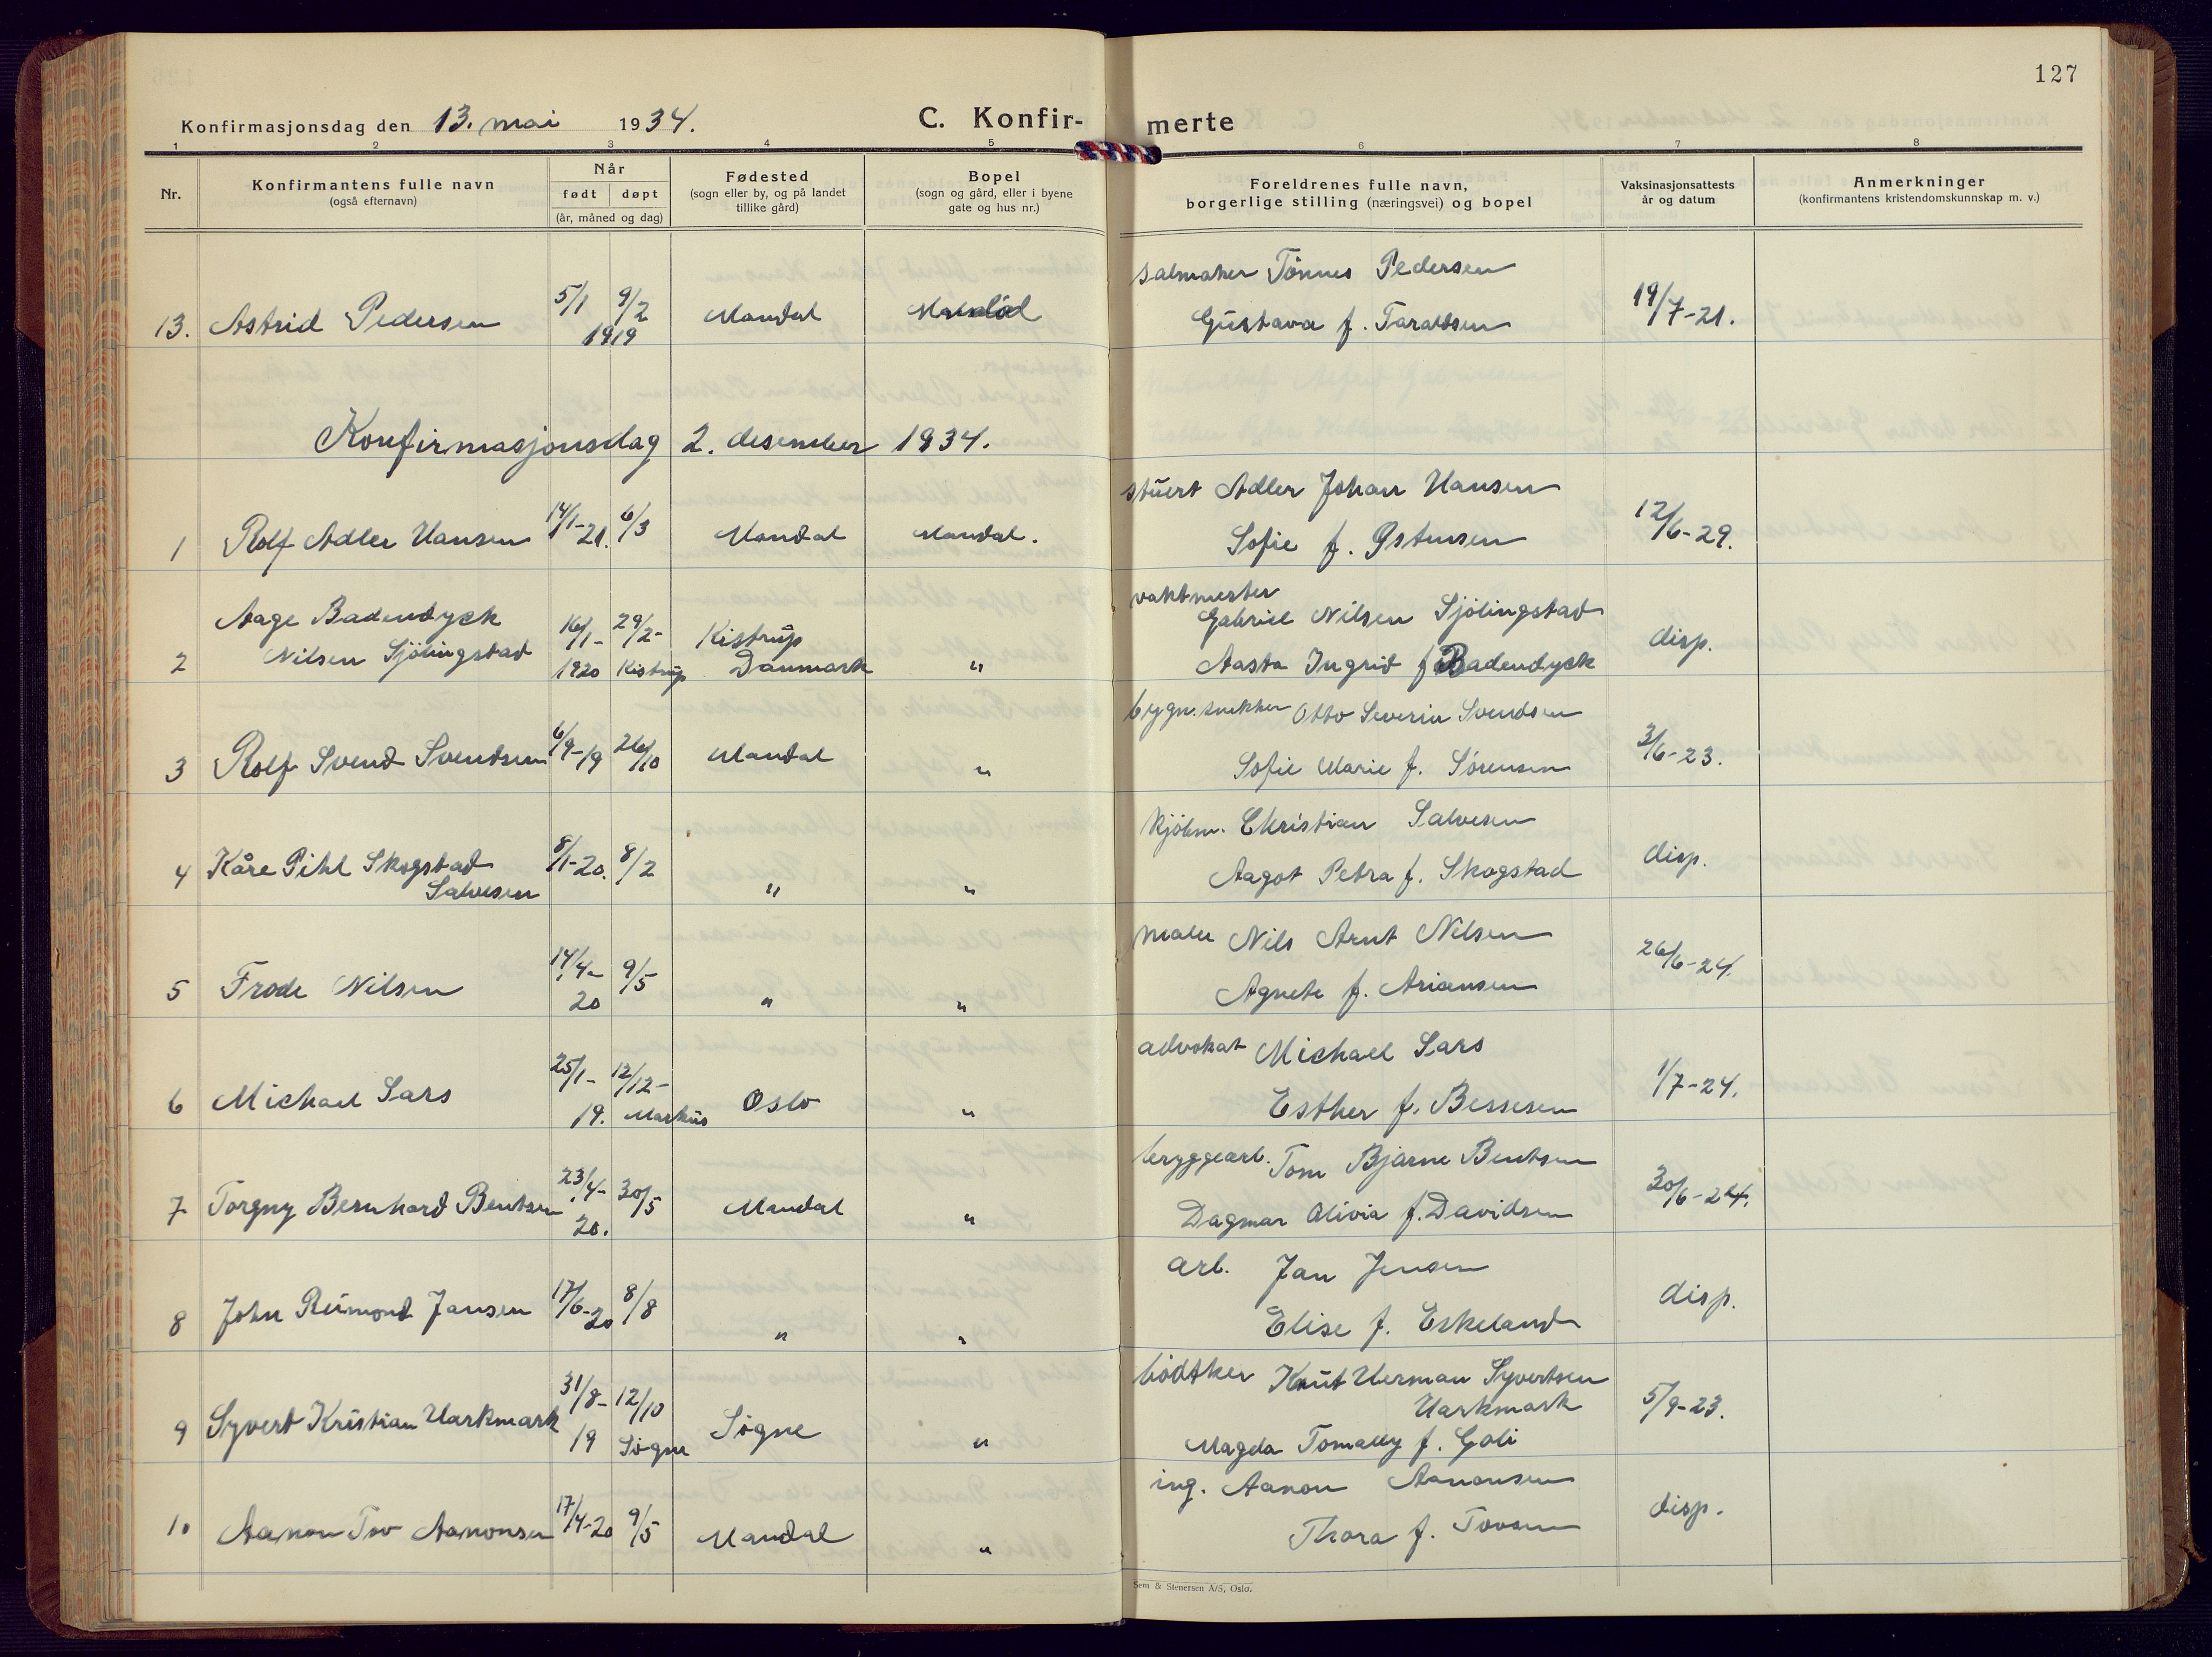 127
Konfirmasjonsdag den 13. mai 1934. C. Konfirmerte
1 2 3 4 5 6 7 8
Nr. Konfirmantens fulle navn (også efternavn) Når født døpt (år, måned og dag) Fødested (sogn eller by, og på landet tillike gård) Bopel (sogn og gård, eller i byene gate og hus nr.) Foreldrenes fulle navn, borgerlige stilling (næringsvei) og bopel Vaksinasjonsattests år og datum Anmerkninger (konfirmantens kristendomskunnskap m. v.)
salmaker Tönnes Pedersen
13. Astrid Pedersen 5/1 9/2 1919 Mandal Mandal Gustava f. Taraldsen 19/7-21.
Konfirmasjonsdag 2. desember 1934.
stuert Adler Johan Hansen
1 Rolf Adler Hansen 14/1-21. 6/3 Mandal Mandal. Sofie f. Østensen 12/6-29.
vaktmester
Aage Badendyck 16/1- 29/2- Kistrup Gabriel Nilsen Sjölingstad
2 Nilsen Sjölingstad 1920 Kistrup Danmark " Aasta Ingrid f. Badendyck disp.
bygn. snekker Otto Severin Svendsen
3 Rolf Svend Svendsen 6/9-19 26/10 Mandal " Sofie Marie f. Sörensen 3/6-23.
kjöbm. Christian Salvesen
4 Kåre Pihl Skogstad 8/1-20. 8/2 " " Aagot Petra f. Skogstad disp.
Salvesen
maler Nils Arnt Nilsen
5 Frode Nilsen 14/4-20 9/5 " " Agnete f. Ariansen 26/6-24.
advokat Michael Sars
6 Michael Sars 25/1-19. 12/12- Markus Oslo " Esther f. Bessesen 1/7-24.
bryggearb. Tom Bjarne Bentsen
7 Torgny Bernhard Bentsen 23/4-20. 30/5 Mandal " Dagmar Olivia f. Davidsen 30/6-24.
arb. Jan Jensen
8 John Reimond Jansen 17/6-20 8/8 " " Elise f. Eskeland disp.
bödtker Knut Herman Syvertsen
Harkmark
9 Syvert Kristian Harkmark 31/8-19 12/10 Sögne Sögne " Magda Tomally f. Goli 5/9-23.
ing. Aanon Aanonsen
10 Aanon Tov Aanonsen 17/4-20 9/5 Mandal " Thora f. Tovsen disp.
Sem & Stenersen A/S, Oslo.